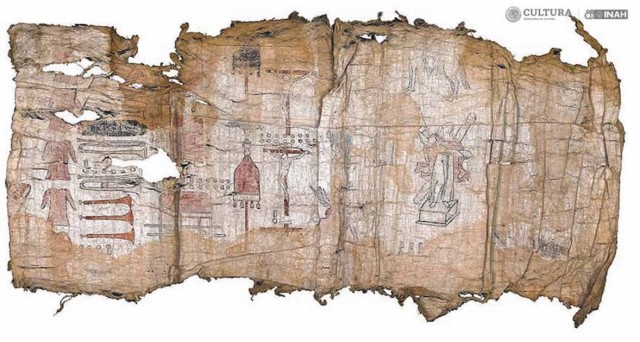 CULTURA INAH